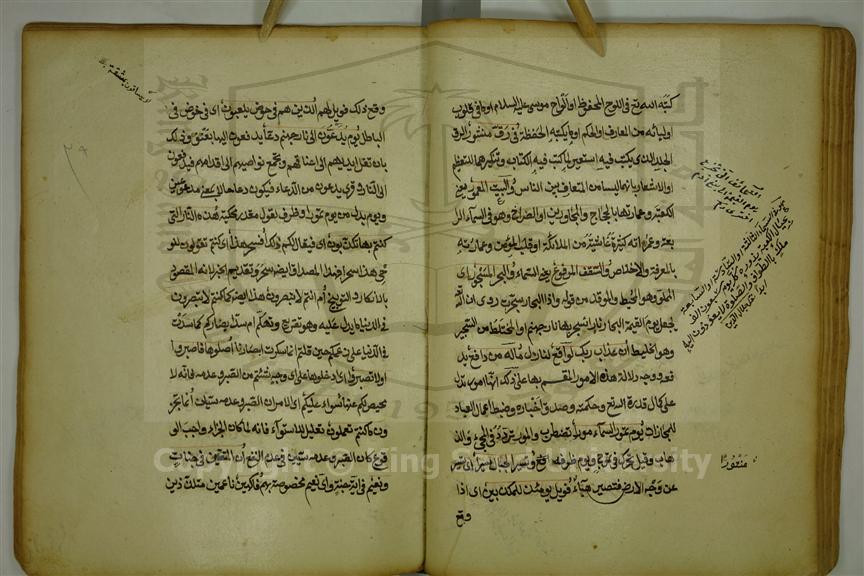 كتبه الله تع في اللوح المحفوظ او الواح موسى عليه السلام او ما في قلوب
اوليائه من المعارف والحكم او ما يكتبه الحفظة في رق منشور الرق
الجلد الذي يكتب فيه استعير لما كتب فيه الكتاب وتنكيرهما للتعظيم
والاشعار بانهما ليسا من المتعارف بين الناس والبيت المعمور يعني
الكعبة وعمارتها بالحجاج والمجاورين او الضراح وهو في السماء الرا
بعة وعمرانه كثرة غاشيته من الملائكة او قلب المؤمن وعمارته
بالمعرفة والاخلاص والسقف المرفوع يعني السماء والبحر المسجور اي
المملو وهو المحيط او الموقد من قوله واذا البحار سجرت روي ان الله
يجعل يوم القيمة البحار نارا تسجر بها نار جهنم او المختلط من السجير
وهو الخليط ان عذاب ربك لواقع لنازل ماله من دافع يد
فعه ووجه دلالة هذه الامور المقسم بها على ذلك انها امور تدل
على كمال قدرة الله تع وحكمته وصدق اخباره وضبط اعمال العباد
للمجازات يوم تمور السماء مورا تضطرب والمور تردد في المجئ والذ
هاب وقيل تحرك في تموج ويوم ظرف لواقع وتسير الجبال سيرا اي تسير
عن وجه الارض فتصير هباء فويل يومئذ للمكذبين اي اذا
وقع
منثورا
وقع ذلك فويل لهم الذين هم في خوض يلعبون اي في خوض في
الباطل يوم يدعون الى نار جهنم دعا يدفعون اليها بعنف وذلك
بان تغل ايديهم الى اعناقهم وتجمع نواصيهم الى اقدامهم فيدفعون
الى النار وقرئ يدعون من الدعاء فيكون دعا حالا بمعنى مدعوعين
ويوم بدل من يوم تمور او ظرف لقول مقدر محكيه هذه النار التي
كنتم بها تكذبون اي فيقال لهم ذلك افسحر هذا اي كنتم تقولون للو
حي هذا سحر افهذا المصداق ايضا سحر وتقديم الخبر لانه المقصود
بالانكار والتوبيخ ام انتم لا تبصرون هذا ايضا كما كنتم لا تبصرون
في الدنيا ما يدل عليه وهو تقريع وتهكم ام سد ابصاركم كما سدت
في الدنيا على زعمكم حين قلتم انما سكرت ابصارنا اصلوها فاصبروا
او لا تصبروا اي ادخلوها على اي وجه شئتم من الصبر وعدمه فانه لا
محيص لكم عنها سواء عليكم اي الامران الصبر وعدمه سيان انما تجز
ون ما كنتم تعملون تعليل للاستواء فانه لما كان الجزاء واجب الو
قوع كان الصبر وعدمه سيان في عدم النفع ان المتقين في جنات
ونعيم في اية جنات واي نعيم مخصوصة بهم فاكهين ناعمين متلذذين
Copyright © King Saud University